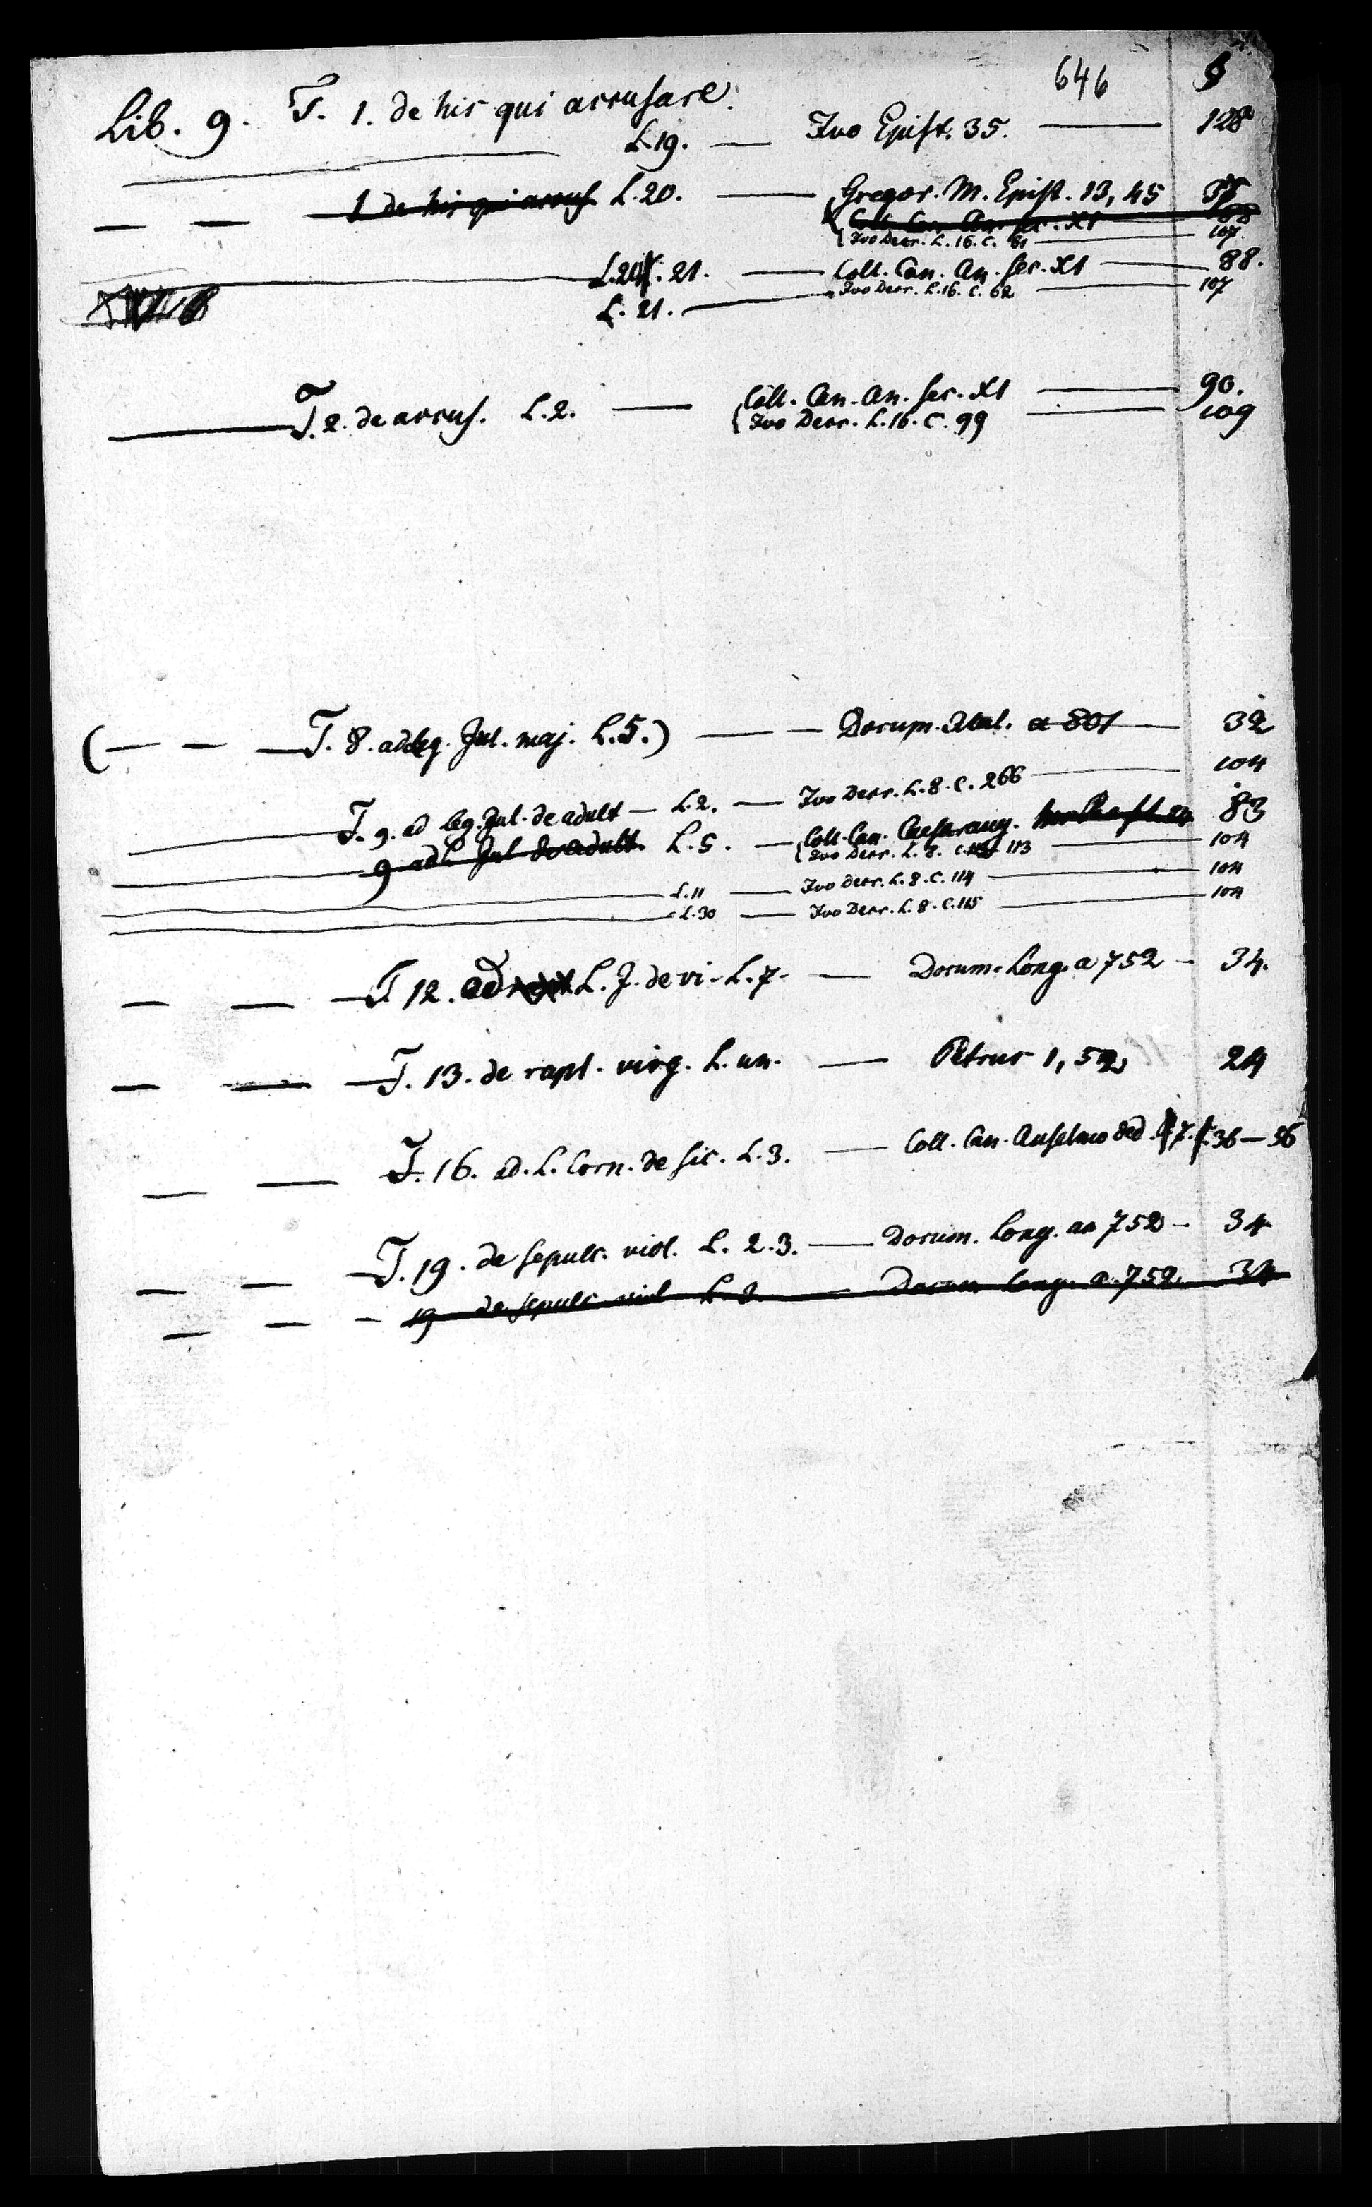 646
Lib. 9. T. 1. de his qui accusare.
L. 19. — Ivo Epist. 35. — 128
— — 1 de his qui accus L. 20. — Gregor. M. Epist. 13, 45
Coll. Can. An. sec. XI — 88
Ivo Decr. L. 16. C. 61 — 107
L. 21. — Coll. Can. An. sec. XI — 88.
L. 21. — Ivo Decr. L. 16. C. 62 — 107
— T. 2. de accus. L. 2. — Coll. Can. An. sec. XI — 90.
Ivo Decr. L. 16. C. 99 — 109
( — — — T. 8. ad leg. Jul. maj. L. 5.) — — Docum. a 801 — 32
— T. 9. ad leg. Jul. de adult — L. 2. — Ivo Decr. L. 8. C. 266 — 104
— 9 ad L. Jul de adult. L. 5. — Coll. Can. Caesaraug. 83
Ivo Decr. L. 8. C. 113 — 104
— L. 11 — Ivo Decr. L. 8. C. 114 — 104
— L. 30 — Ivo Decr. L. 8. C. 115 — 104
— — — T. 12. ad L. J. de vi - L. 7. — Docum. Long. a 752 — 34.
— — — T. 13. de rapt. virg. L. un. — Petrus 1, 52 24
— — T. 16. ad. L. Corn. de sic. L. 3. — Coll. Can. Anselmo ded. 7. 36 — 36
— — — T. 19. de sepulc. viol. L. 2. 3. — Docum. Long. aa 752 — 34
— — - 19 de sepulc viol L. 2. — Docum Long. a. 752. 34